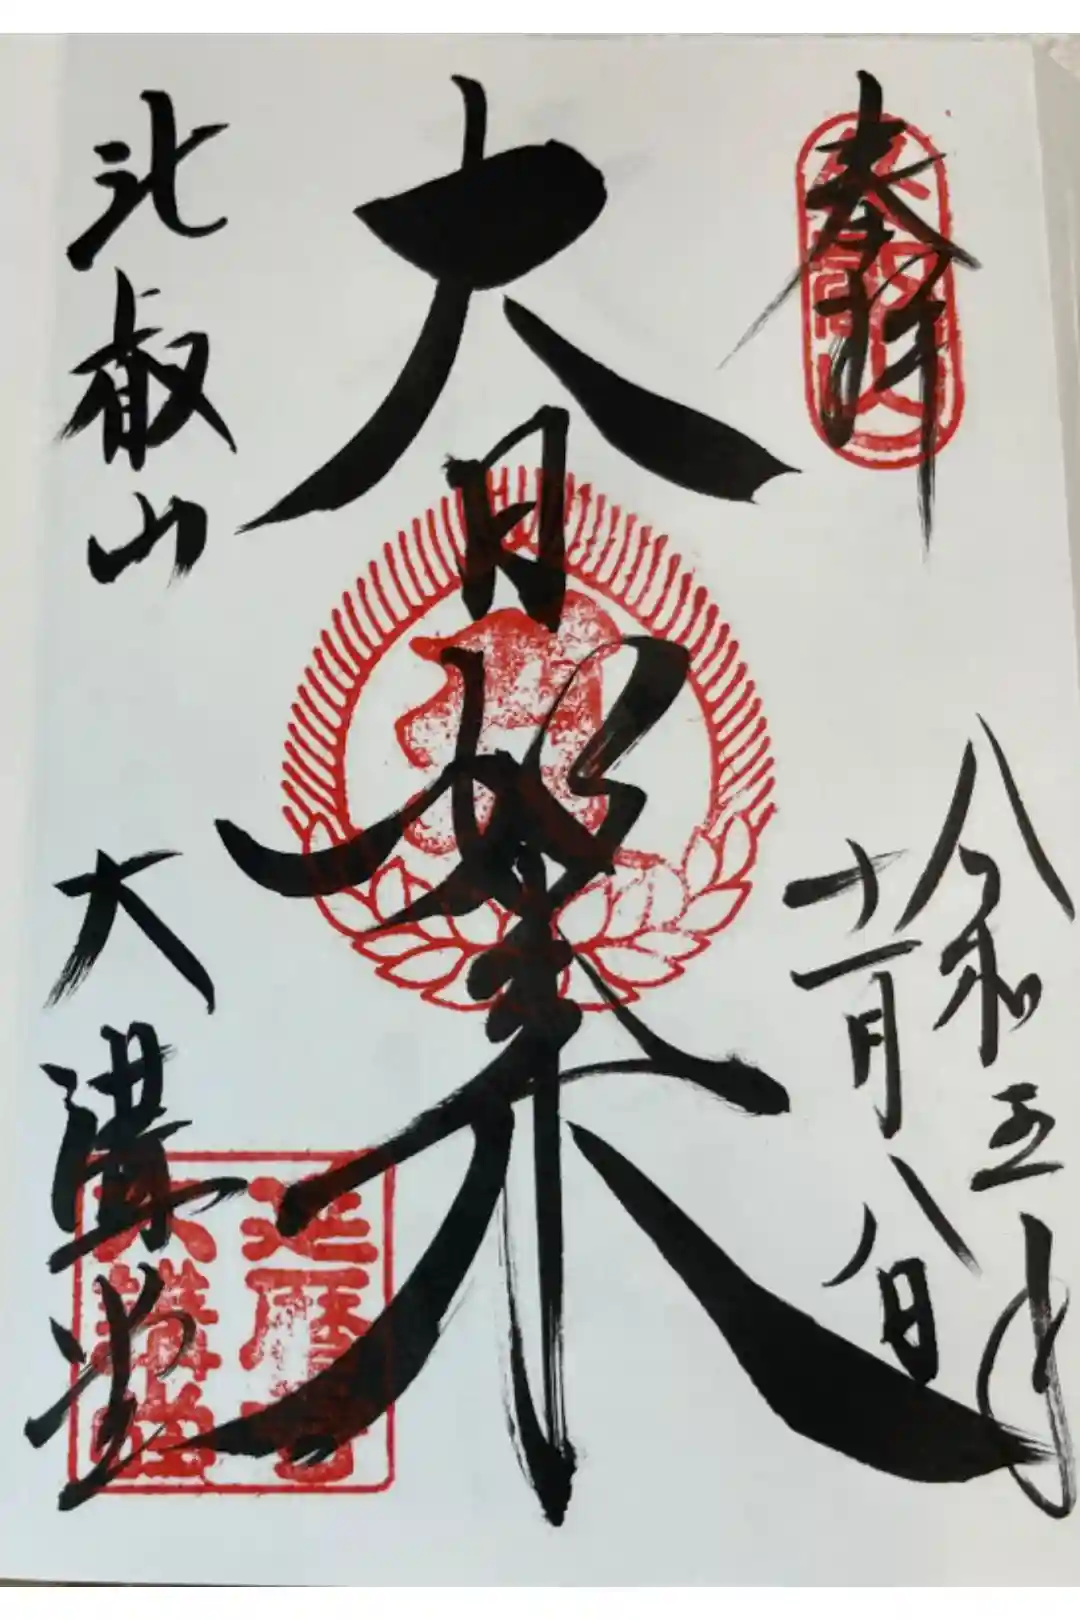 奉拝
令和五年
十一月八日
大日如来
比叡山
大講堂
延暦寺
大講堂